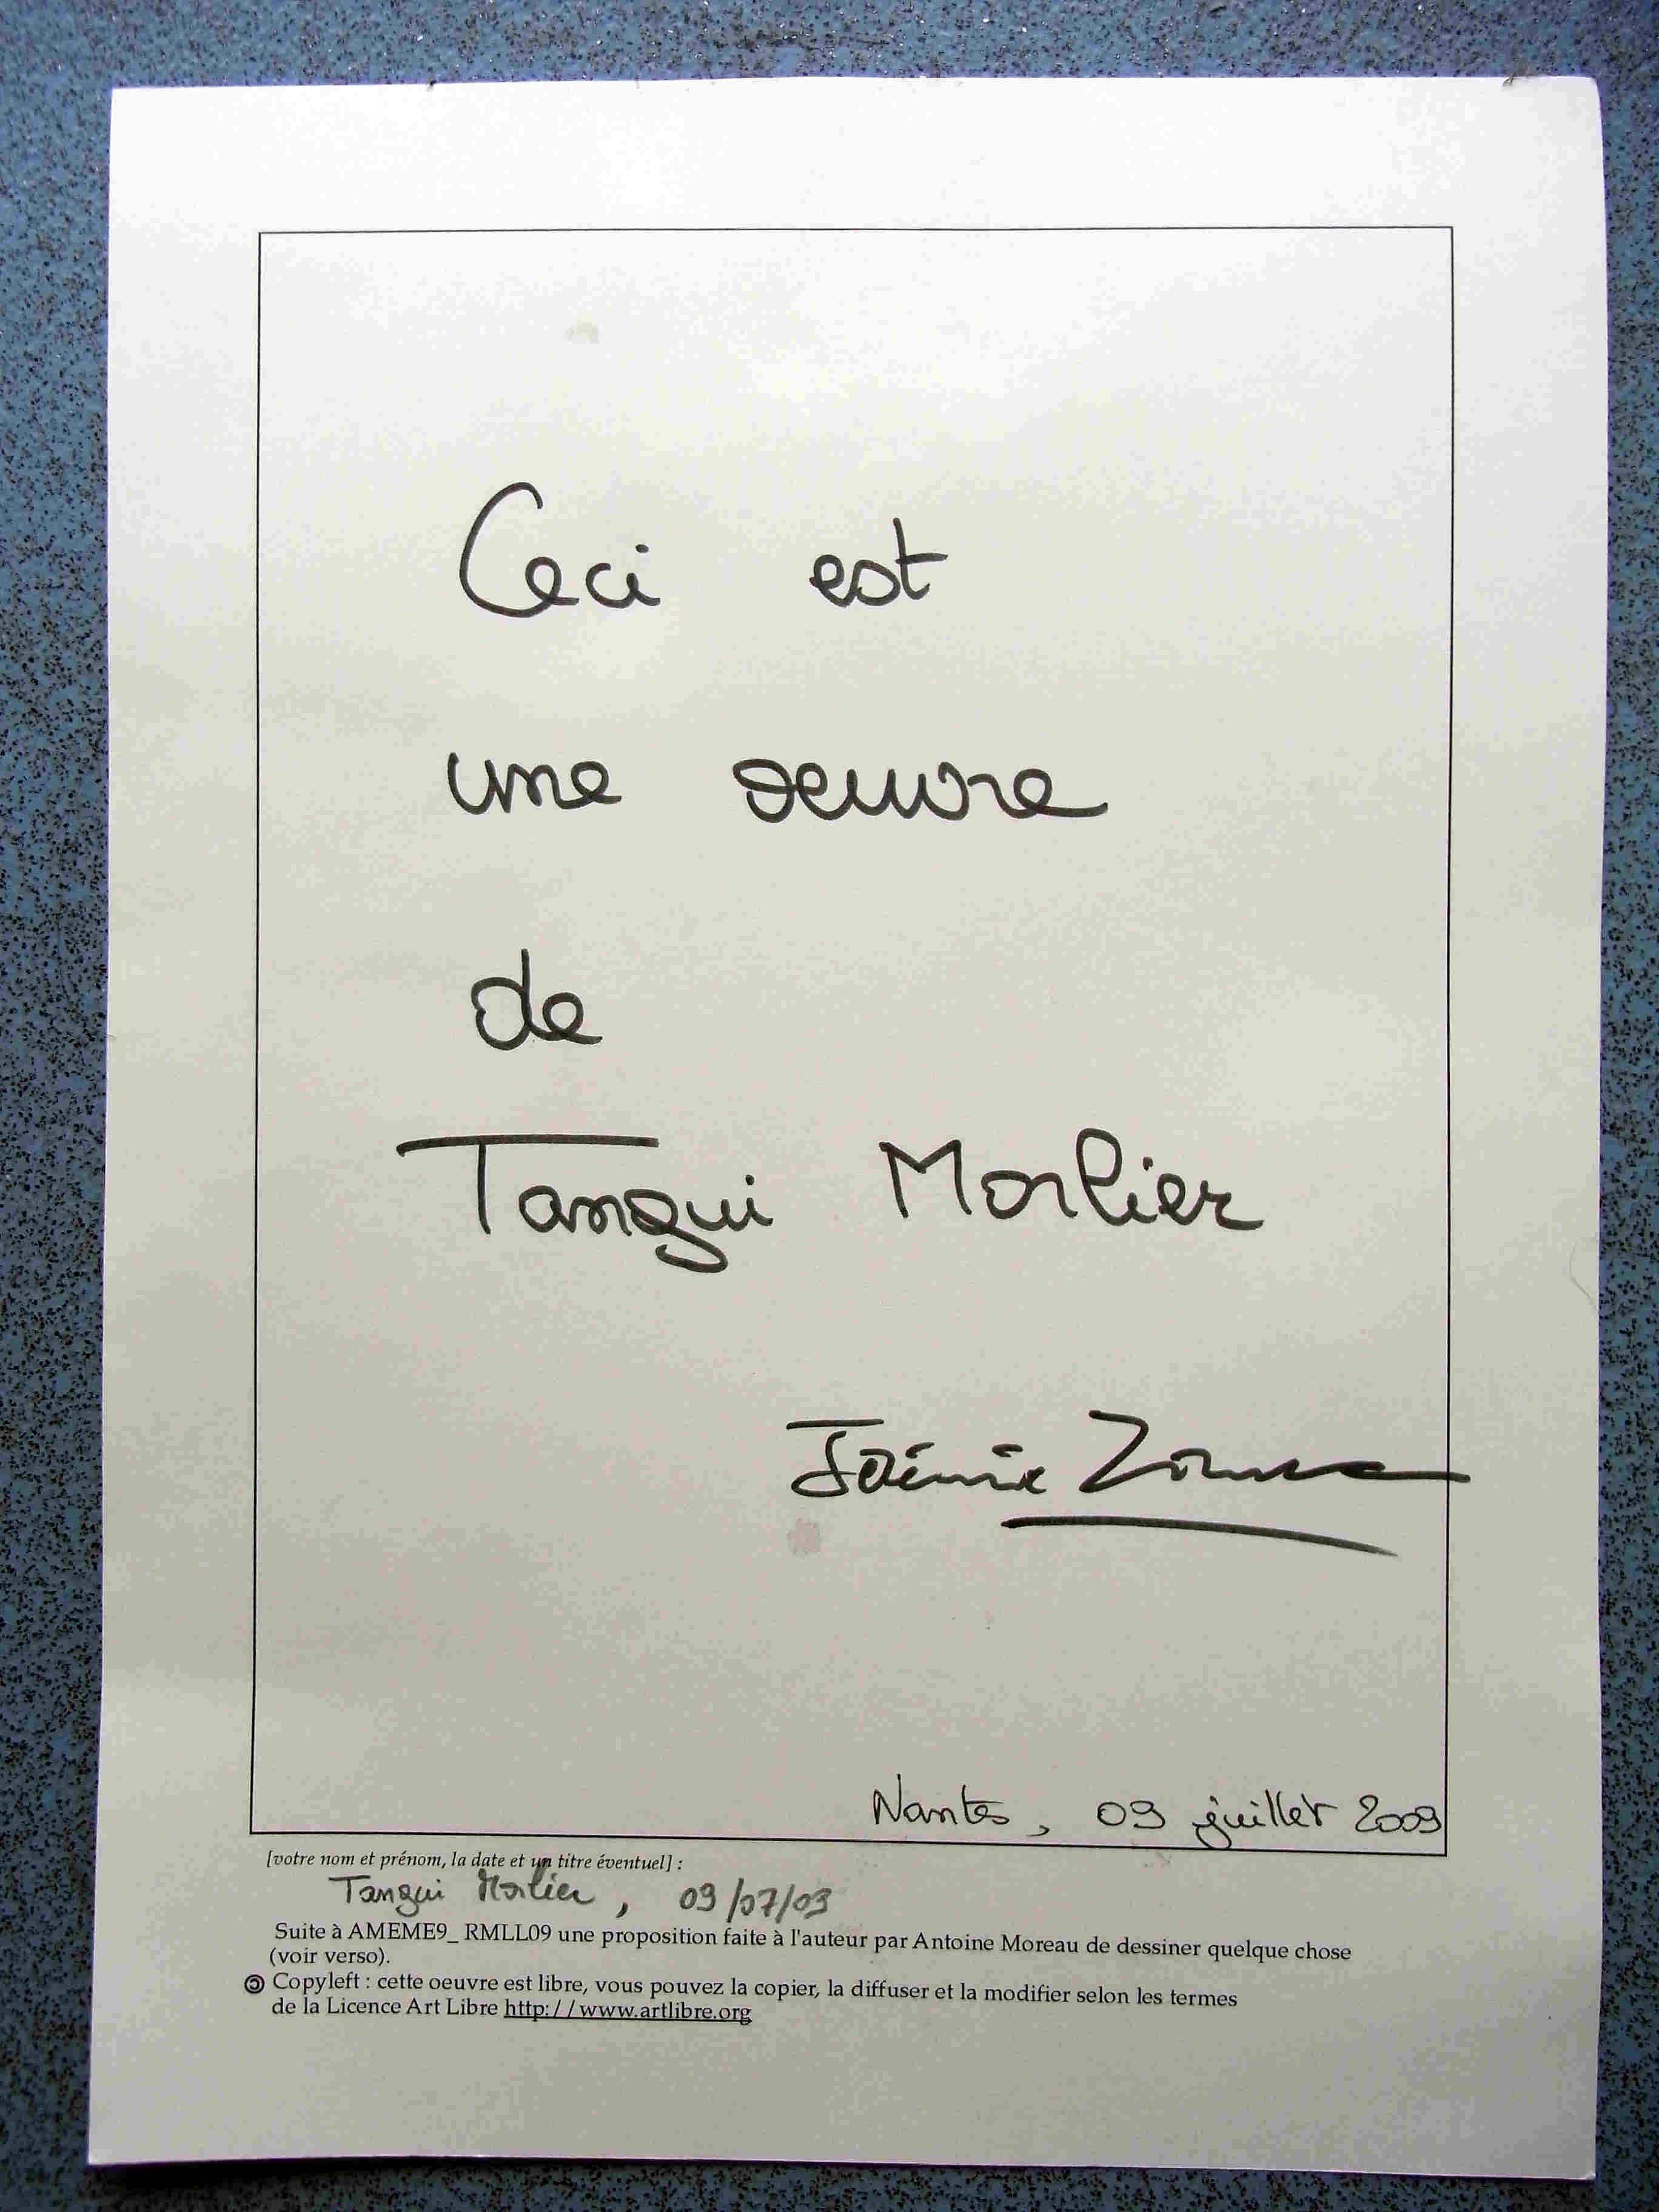 Ceci est
une oeuvre
de
Tangui Morlier
Nantes, 09 juillet 2009
[votre nom et prénom, la date et un titre éventuel] :
Tangui Morlier, 09/07/09
Suite à AMEME9_ RMLL09 une proposition faite à l'auteur par Antoine Moreau de dessiner quelque chose
(voir verso).
Copyleft : cette oeuvre est libre, vous pouvez la copier, la diffuser et la modifier selon les termes
de la Licence Art Libre http://www.artlibre.org